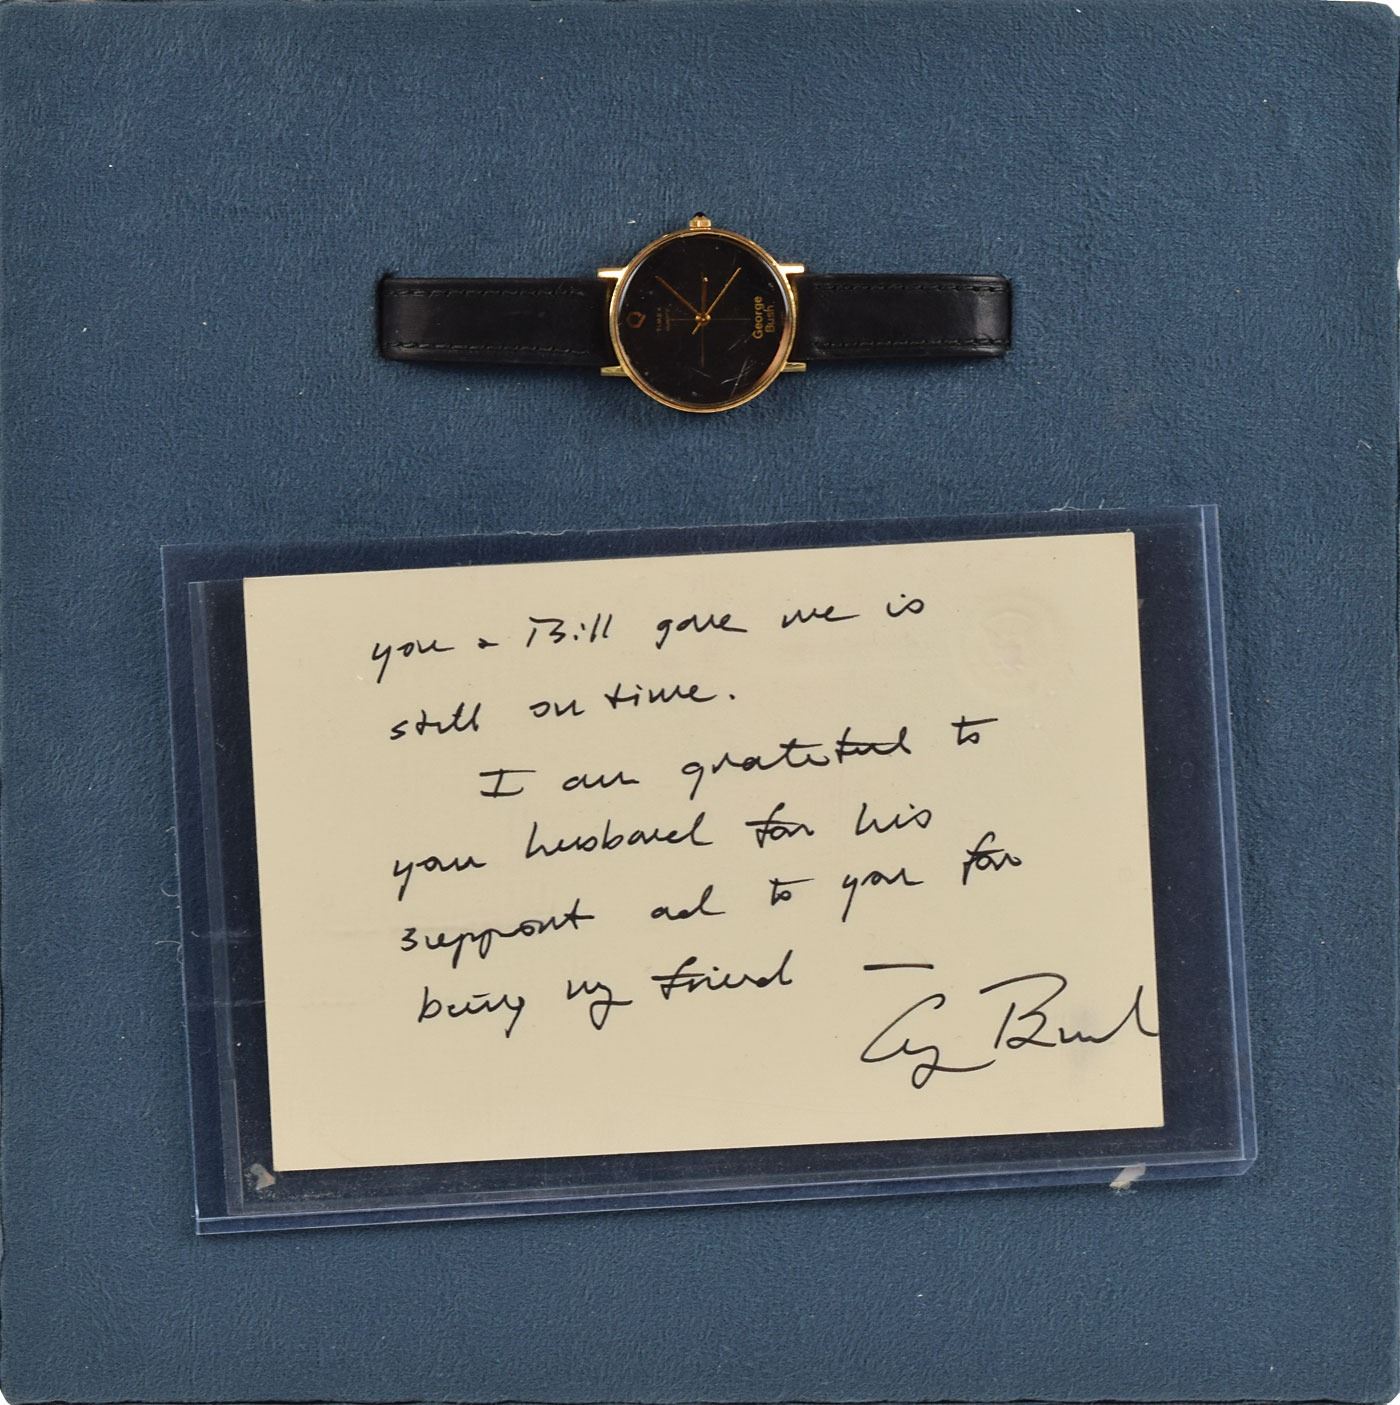 TIMEX
QUARTZ
George
Bush
you & Bill gave me is
still on time.
I am grateful to
your husband for his
support and to you for
being my friend —
Bush